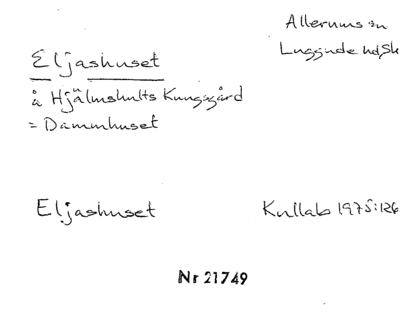 Allerums sn
Luggude hd, Sk
Eljashuset
å Hjälmshults Kungsgård
= Dammhuset
Eljashuset Kullab 1975:126
Nr 21749